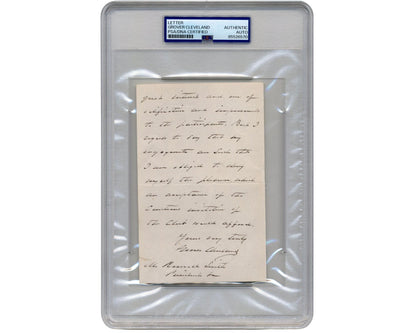 LETTER
GROVER CLEVELAND
PSA/DNA CERTIFIED
AUTHENTIC
AUTO
PSA
great interest and one of
and
to the participants. But I
regret to say that my
engagements are such that
I am obliged to deny
myself the pleasure which
an acceptance of the
courteous invitation of
the Club would afford.
Yours very truly
Grover Cleveland
Smith
President